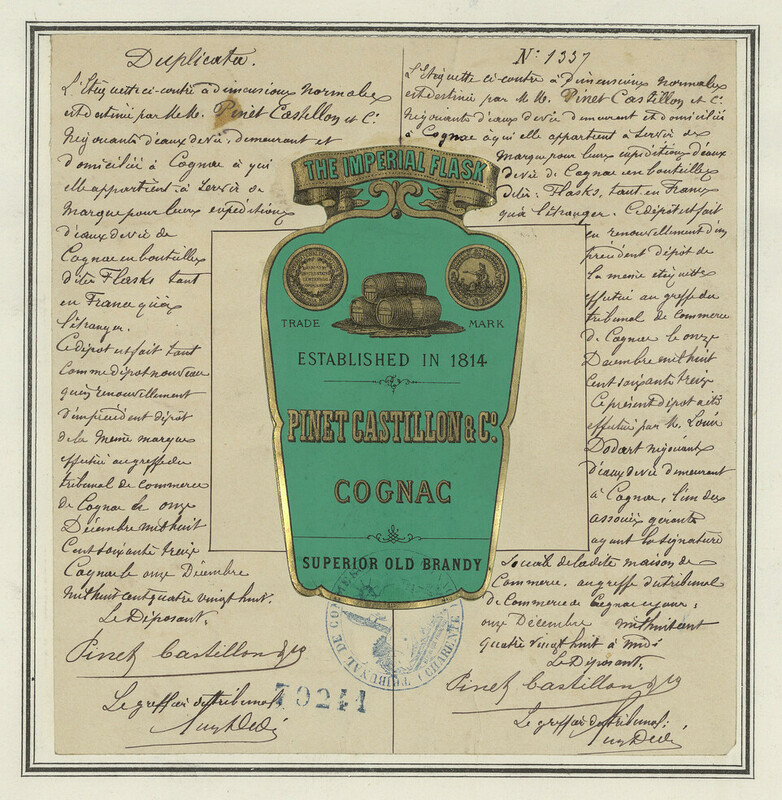 Duplicata.
L'Etiquette ci-contre à dimensions normales
est destinée par MM. Pinet Castillon et Cⁱᵉ
Négociants d'eaux de vie, demeurant et
domiciliés à Cognac à qui
elle appartient à servir de
marque pour leurs expéditions
d'eaux de vie de
Cognac en bouteilles
dites Flasks tant
en France qu'à
l'étranger.
Ce dépôt est fait tant
comme dépôt nouveau
qu'en renouvellement
d'un précédent dépôt
de la même marque
effectué au greffe du
tribunal de commerce
de Cognac le onze
Décembre mil huit
cent soixante treize
Cognac le onze Décembre
mil huit cent quatre vingt huit.
Le Déposant.
Pinet Castillon & Cⁱᵉ
Le greffier du tribunal
N° 1337
L'Etiquette ci-contre à dimensions normales
est destinée par MM. Pinet Castillon et Cⁱᵉ
Négociants d'eaux de vie demeurant et domiciliés
à Cognac à qui elle appartient à servir de
marque pour leurs expéditions d'eaux
de vie de Cognac en bouteilles
dites Flasks, tant en France
qu'à l'étranger. Ce dépôt est fait
en renouvellement d'un
précédent dépôt de
la même étiquette
effectué au greffe du
tribunal de commerce
de Cognac le onze
Décembre mil huit
cent soixante treize
Ce présent dépôt a été
effectué par M. Louis
Dodart négociant
d'eaux de vie demeurant
à Cognac, l'un des
associés gérants
ayant la signature
sociale de la dite maison de
Commerce, au greffe du tribunal
de Commerce de Cognac ce jour,
onze Décembre mil huit cent
quatre vingt huit à midi
Le Déposant,
Pinet Castillon & Cⁱᵉ
Le greffier du tribunal,
THE IMPERIAL FLASK
TRADE MARK
ESTABLISHED IN 1814
PINET CASTILLON & Cº.
COGNAC
SUPERIOR OLD BRANDY
TRIBUNAL DE COMMERCE
(CHARENTE)
70241